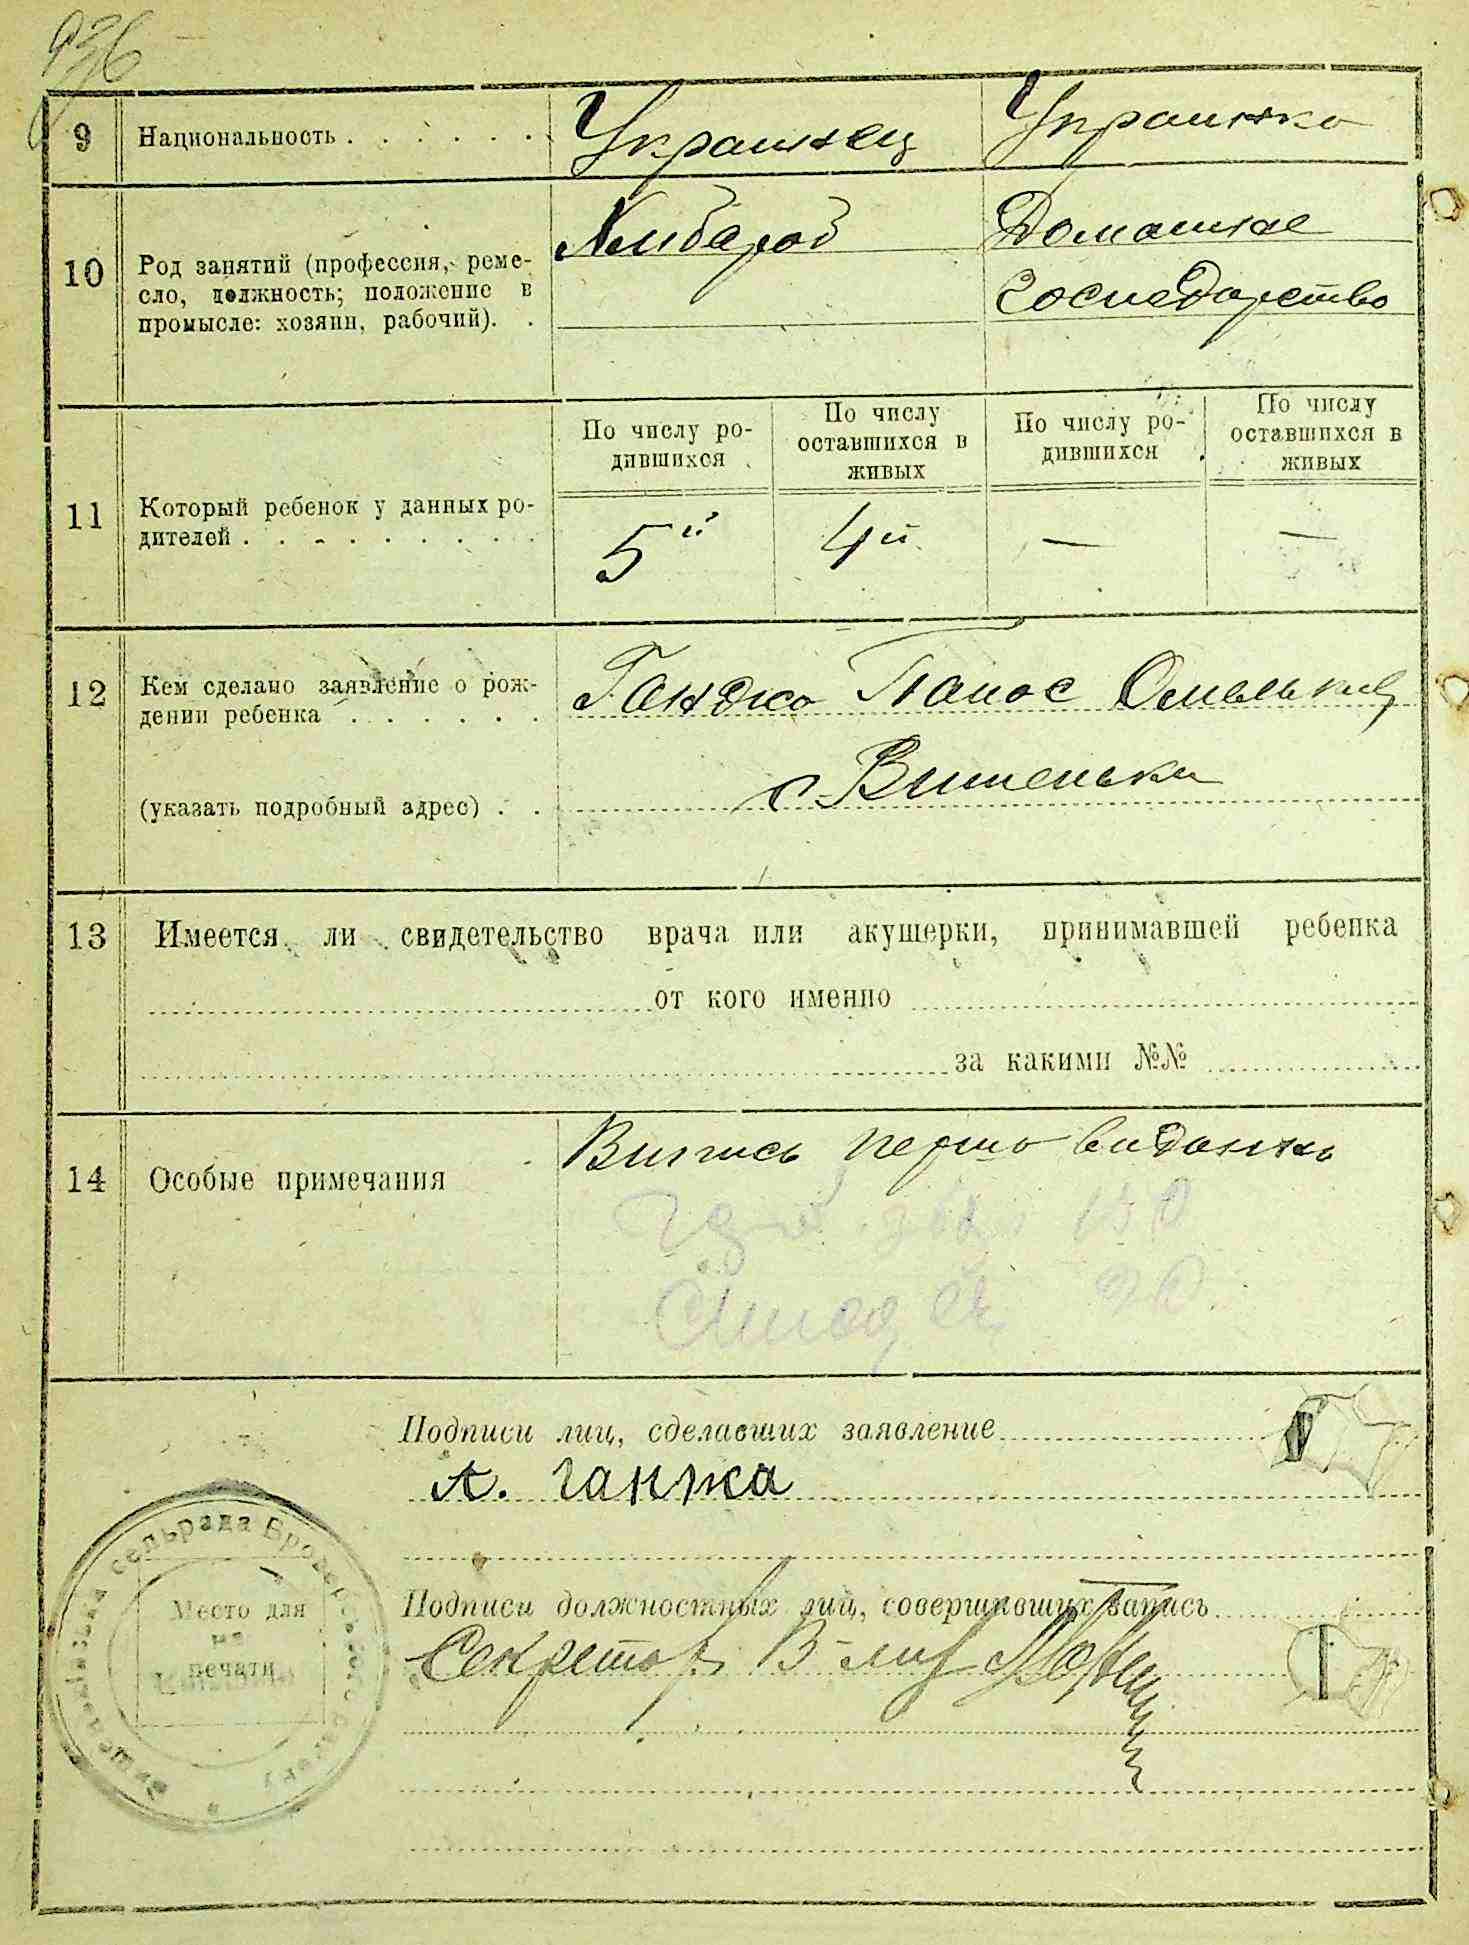 936
9 Национальность . . . . . . Украинец Украинка
10 Род занятий (профессия, реме-
сло, должность; положение в
промысле: хозяин, рабочий). .
Хлибароб
Домашнае
Господарство
11 Который ребенок у данных ро-
дителей . . . . . . . . .
По числу ро-
дившихся
По числу
оставшихся в
живых
По числу ро-
дившихся
По числу
оставшихся в
живых
5й 4й — —
12 Кем сделано заявление о рож-
дении ребенка . . . . . .
Ганджа Панас Омелькив
(указать подробный адрес) . .
с. Вишеньки
13 Имеется ли свидетельство врача или акушерки, принимавшей ребенка
от кого именно
за какими №№
14 Особые примечания
Випись перша видання
130
20
Подписи лиц, сделавших заявление
А. ганжа
Подписи должностных лиц, совершивших запись
Секретар
Место для
печати
сельрада